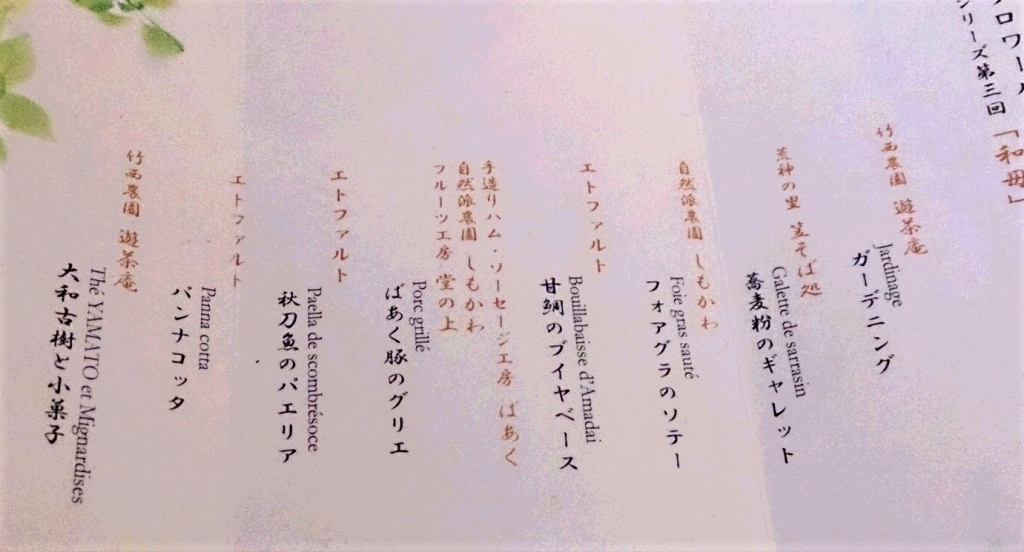 ロワール
シリーズ第三回「和毋」
竹西農園 遊茶庵
Jardinage
ガーデニング
荒神の里 笠そば処
Galette de sarrasin
蕎麦粉のギャレット
自然派農園 しもかわ
Foie gras sauté
フォアグラのソテー
エトファルト
Bouillabaisse d'Amadai
甘鯛のブイヤベース
手造りハム・ソーセージ工房 ばあく
自然派農園 しもかわ
フルーツ工房 堂の上
Porc grillé
ばあく豚のグリエ
エトファルト
Paella de scombrésoce
秋刀魚のパエリア
エトファルト
Panna cotta
パンナコッタ
竹西農園 遊茶庵
Thé YAMATO et Mignardises
大和古樹と小菓子